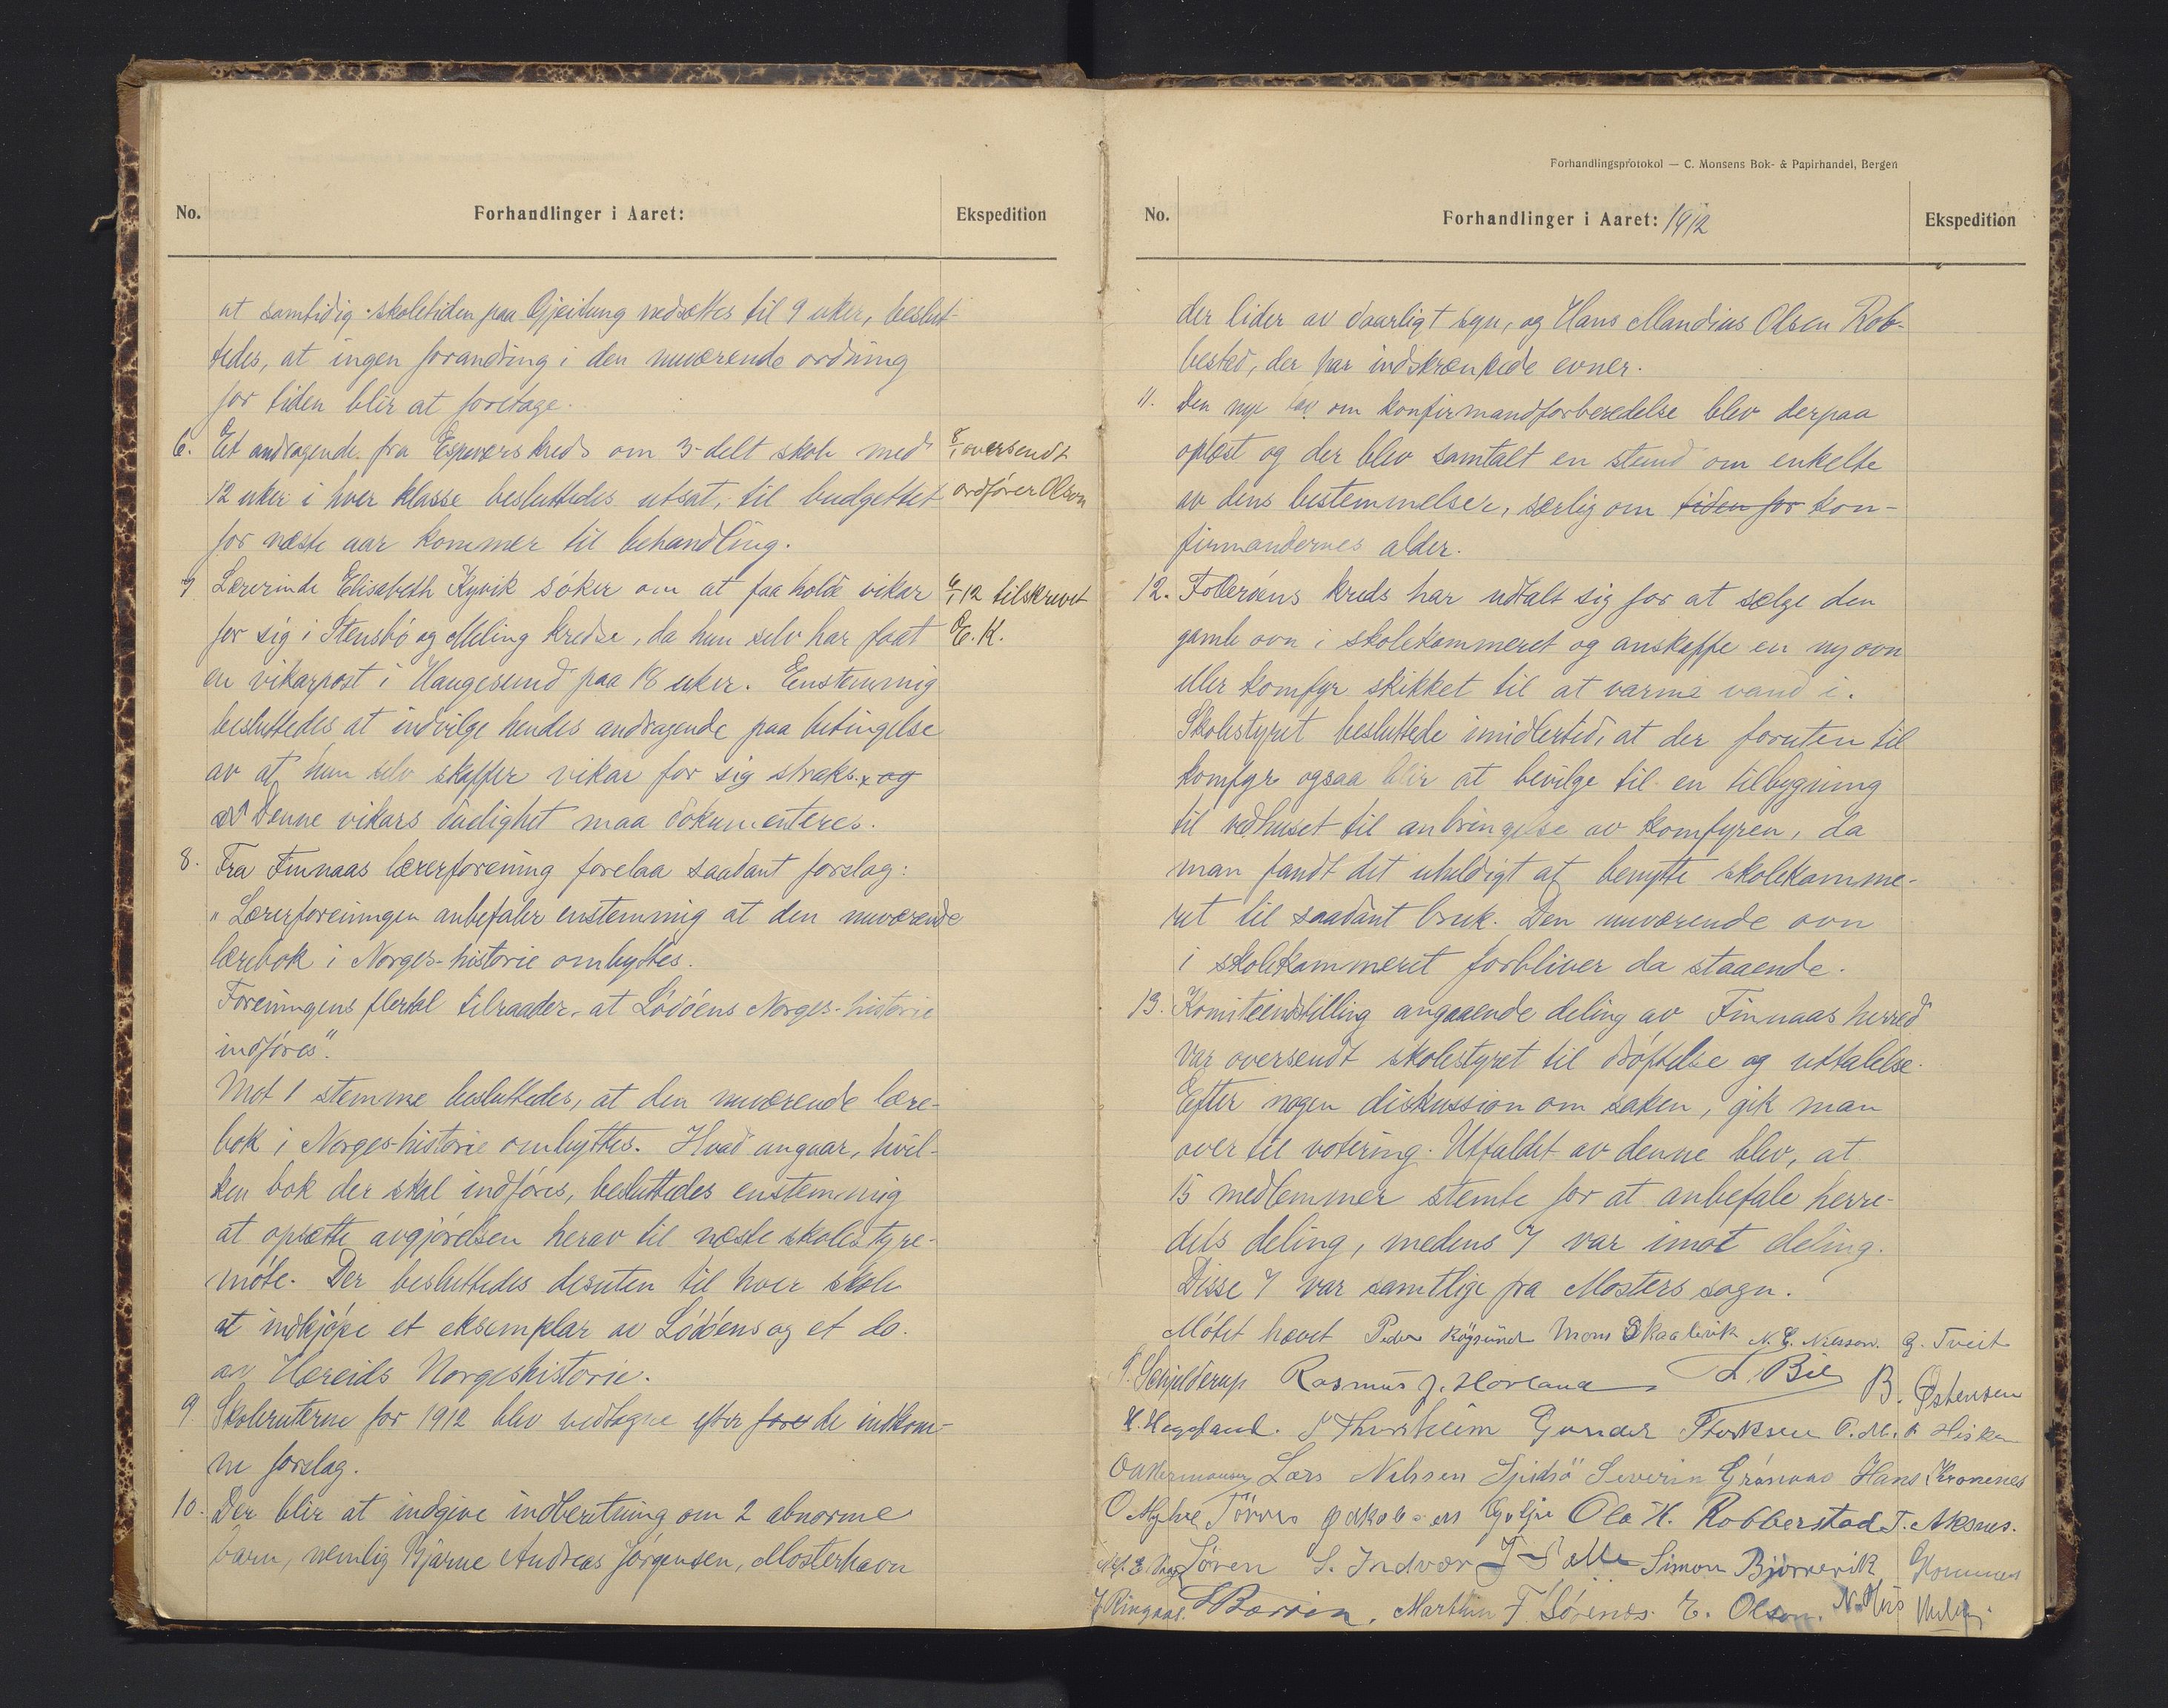 No. Forhandlinger i Aaret: Ekspedition
at samtidig skoletiden paa Gjeitung nedsættes til 9 uker, beslut-
tedes, at ingen forandring i den nuværende ordning
for tiden blir at foretage.
6. Et andragende fra Espevær kreds om 3-delt skole med
12 uker i hver klasse besluttedes utsat, til budgettet
for næste aar kommer til behandling.
oversendt
ordfører Olson
7 Lærerinde Elisabeth Kyvik søker om at faa holde vikar
for sig i Stensbø og Meling kredse, da hun selv har faat
en vikarpost i Haugesund paa 18 uker. Enstemmig
besluttedes at indvilge hendes andragende paa betingelse
av at hun selv skaffer vikar for sig straks. og
Denne vikars dudlighet maa dokumenteres.
12 tilskrevet
E. K.
8. Fra Finnaas lærerforening forelaa saadant forslag:
"Lærerforeningen anbefaler enstemmig at den nuværende
lærebok i Norges-historie ombyttes.
Foreningens flertal tilraader, at Løððens Norges-historie
indføres".
Mot 1 stemme besluttedes, at den nuværende lære-
bok i Norges-historie ombyttes. Hvad angaar, hvil-
ken bok der skal indføres, besluttedes enstemmig
at opsætte avgjørelsen herav til næste skolestyre-
møte. Der besluttedes desuten til hver skole
at indkjøpe et eksemplar av Løððens og et do.
av Hæreids Norgeshistorie.
9 Skoleruterne for 1912 blev vedtagne efter fore de indkom-
ne forslag.
10. Der blir at indgive indberetning om 2 abnorme
barn, nemlig Bjarne Andreas Jørgensen, Mosterhavn
Forhandlingsprotokol — C. Monsens Bok- & Papirhandel, Bergen
No. Forhandlinger i Aaret: 1912 Ekspedition
der lider av daarligt syn, og Hans Mandius Olsen Rob-
bestad, der har indskrænkede evner.
11. Den nye lov om konfirmandforberedelse blev derpaa
oplæst og der blev samtalt en stund om enkelte
av dens bestemmelser, særlig om tiden for kon-
firmandernes alder.
12. Follerøens kreds har udtalt sig for at sælge den
gamle ovn i skolekammeret og anskaffe en ny ovn
eller komfyr skikket til at varme vand i.
Skolestyret besluttede imidlertid, at der foruten til
komfyr ogsaa blir at bevilge til en tilbygning
til vedhuset til anbringelse av komfyren, da
man fandt det uheldigt at benytte skolekamme-
ret til saadant bruk. Den nuværende ovn
i skolekammeret forbliver da staaende.
13. Komiteindstilling angaaende deling av Finnaas herred
var oversendt skolestyret til drøftelse og uttalelse.
Efter nogen diskussion om saken, gik man
over til votering. Utfaldet av denne blev, at
15 medlemmer stemte for at anbefale herre-
dets deling, medens 7 var imot deling.
Disse 7 var samtlige fra Mosters sogn.
Møtet hævet Peder Røgsund Mons Skaalevik N. E. Nilsson. G. Tveit
Schjelderup Rasmus J. Hovland L Bie B. Østensen
H. Hageland. Thorsheim Gunder Torksen
Lars Nilssen Severin Grønaas Hans Kronenes
O Myhre Tørres Jakobsen Ola H. Robberstad T. Aksnes.
Søren S. Indvær Simon Bjørnevik Hommen
J Ringaas. Marthin T. Sørenes. E. Olson. N. Hus